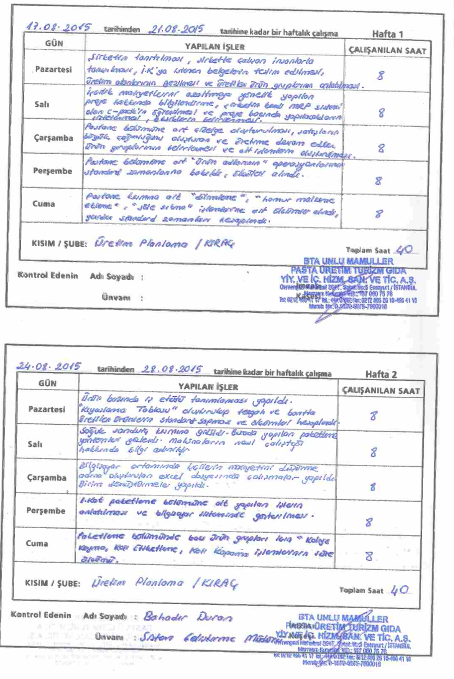 17.08.2015 tarihinden 21.08.2015 tarihine kadar bir haftalık çalışma Hafta 1
GÜN YAPILAN İŞLER ÇALIŞANILAN SAAT
Pazartesi
Şirketin tanıtılması, şirkette çalışan insanlarla
tanışılması, İ.K'ya istenen belgelerin teslim edilmesi,
üretim alanlarının gezilmesi ve üretilen ürün gruplarının anlatılması.
8
Salı
maliyetlerini azaltmaya yönelik yapılan
proje hakkında bilgilendirme, şirketin kendi MRP sistemi
olan öğrenilmesi ve proje başında
8
Çarşamba
Pastane bölümüne ait oluşturulması, satışların
büyük çoğunluğunu oluşturan ve üretime devam eden
ürün gruplarının belirlenmesi ve
8
Perşembe
Pastane bölümüne ait "ürün operasyonların
standard zamanlarına bakıldı, ölçüleri alındı.
8
Cuma
Pastane kısmına ait "dilimleme", "hamur malzeme
ekleme", işlemlerine ait ölçümler alındı,
standard zamanları hesaplandı.
8
KISIM / ŞUBE: Üretim Planlama / KIRAÇ Toplam Saat 40
Kontrol Edenin Adı Soyadı :
Ünvanı :
BTA UNLU MAMULLER
PASTA ÜRETİM TURİZM GIDA
YİY. VE İÇ. HİZM. SAN. VE TİC. A.Ş.
24.08.2015 tarihinden 28.08.2015 tarihine kadar bir haftalık çalışma Hafta 2
GÜN YAPILAN İŞLER ÇALIŞANILAN SAAT
Pazartesi
Ürün bazında iş etüdü tanımlaması yapıldı.
"Kıyaslama Tablosu" oluşturulup tezgah ve bantta
üretilen ürünlerin standart sapması ve ölçümleri hesaplandı.
8
Salı
Soğuk sandviç kısmına geçildi. Burada yapılan paketleme
yöntemleri Makinaların nasıl çalıştığı
hakkında bilgi
8
Çarşamba
Bilgisayar ortamında işçilerin maliyetini düşürme
adına oluşturulan excel dosyasında çalışmalar yapıldı.
Birim dönüştürmeler yapıldı.
8
Perşembe
1.Kat paketleme bölümüne ait yapılan işlerin
anlatılması ve bilgisayar sisteminde gösterilmesi.
8
Cuma
Paketleme bölümünde bazı ürün grupları için "Koliye
koyma, Koli Etiketleme, Koli Kapama işlemlerinin süre
ölçümü.
8
KISIM / ŞUBE: Üretim Planlama / KIRAÇ Toplam Saat 40
Kontrol Edenin Adı Soyadı : Bahadır Duran
Ünvanı : Satan Geliştirme
BTA UNLU MAMULLER
PASTA ÜRETİM TURİZM GIDA
YİY. VE İÇ. HİZM. SAN. VE TİC. A.Ş.